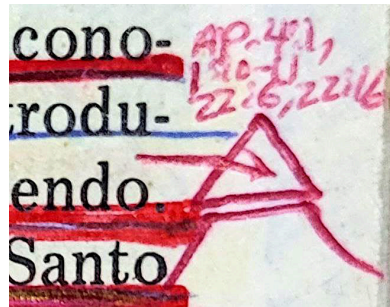 cono-
trodu-
endo.
Santo
Ap. 4:1,
1:10-11
22:6, 22:16